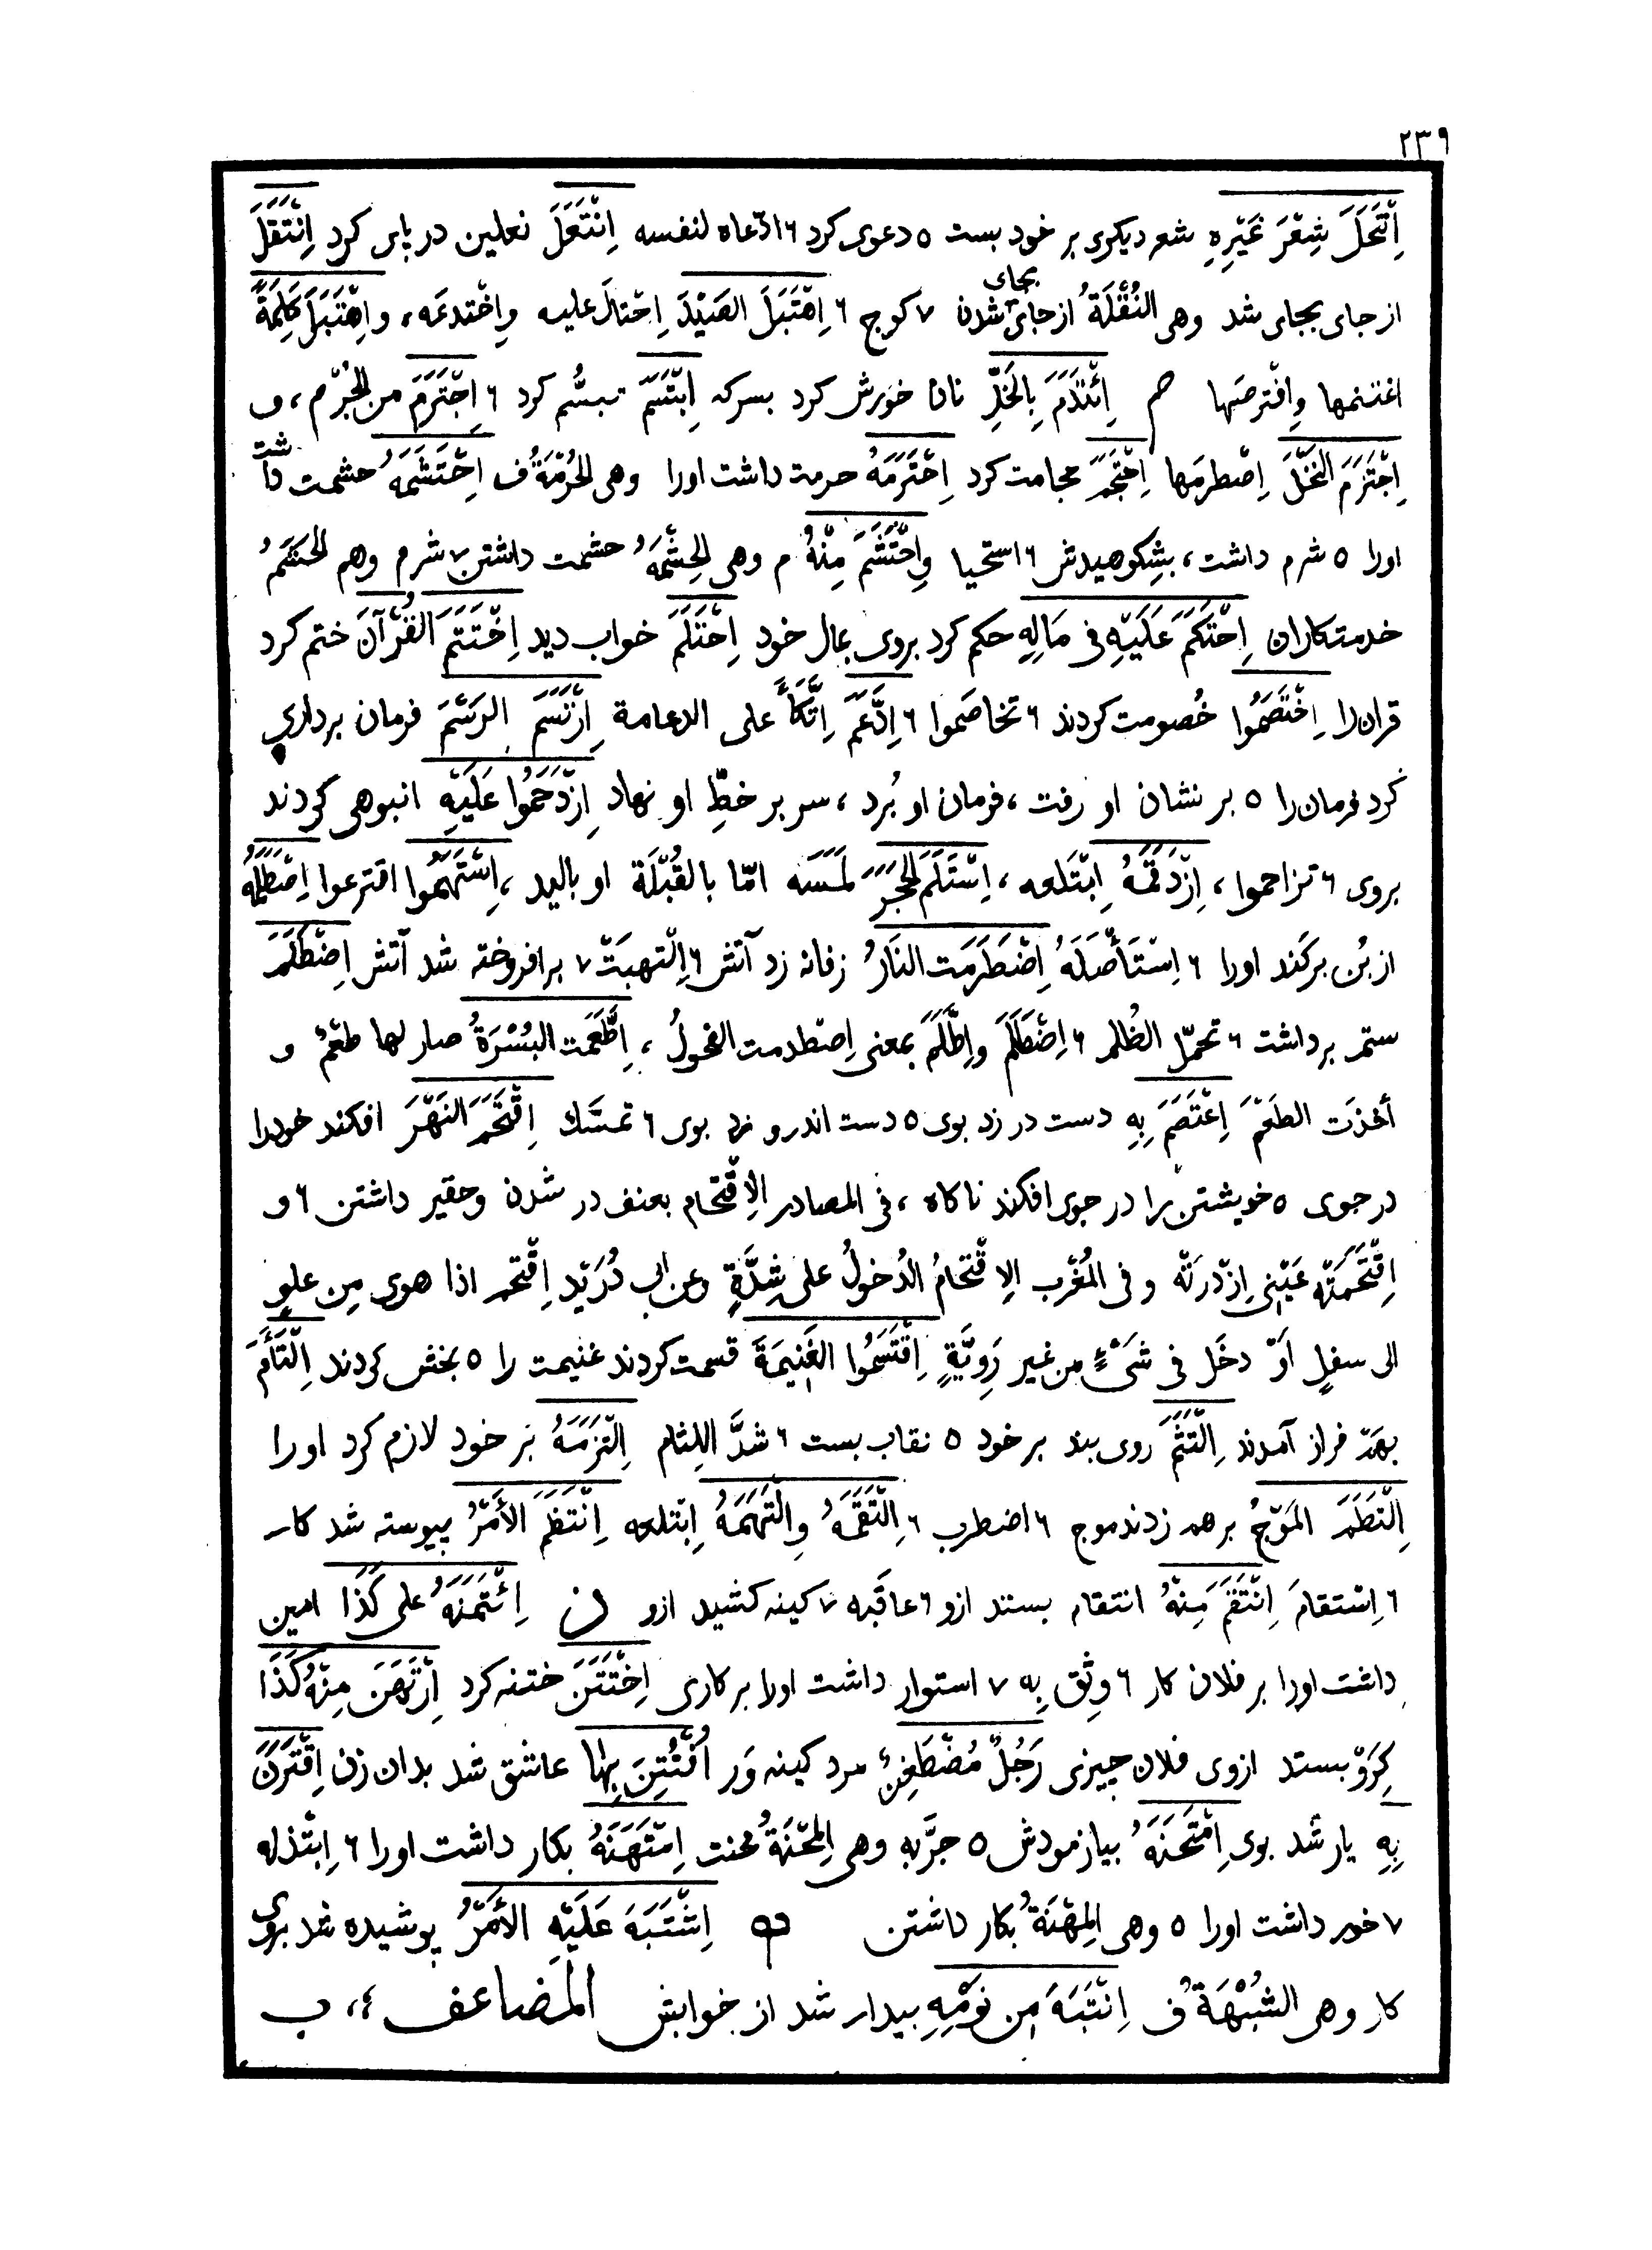 ٢٣٩
اِنْتَحَلَ شِعْرَ غَيْرِهِ شعر ديكرى بر خود بست ٥ دعوى كرد ٦ ادّعاه لنفسه اِنْتَعَلَ نعلين در پاى كرد اِنْتَقَلَ
از جاى بجاى شد وهى النُقْلَةُ از جاى بجاى شدن ٧ كوچ ٦ اِهْتَبَلَ الصَيْدَ اِحْتالَ عليه واِخْتدعَه، واِهْتَبَلَ كَلِمَةً
اغتنمها واِفْترصَها م اِئْتَدَمَ بِالخَلِّ نان خورش كرد بسركه اِبْتَسَمَ تبسُّم كرد ٦ اِجْتَرَمَ من الجُرْم، و
اِجْتَرَمَ النَخْلَ اِصْطرمَها اِحْتَجَمَ حجامت كرد اِحْتَرَمَهُ حرمت داشت اورا وهى الحُرْمَةُ ف اِحْتَشَمَهُ حشمت داشت
اورا ٥ شرم داشت، بشِكوهيدش ٦ استحيا واِحْتَشَمَ مِنْهُ م وهى الحِشْمَةُ حشمت داشتن ٧ شرم وهم الحَشَمُ
خدمتكاران اِحْتَكَمَ عَلَيْهِ فى مَالِهِ حكم كرد بروى بمال خود اِحْتَلَمَ خواب ديد اِخْتَتَمَ القُرْآنَ ختم كرد
قران را اِخْتَصَمُوا خُصومت كردند ٦ تخاصَموا ٦ اِدَّعَمَ اِتَّكَأَ على الدعامة اِرْتَسَمَ الرَسْمَ فرمان بردارى
كرد فرمان را ٥ بر نشان او رفت، فرمان او بُرد، سر بر خطِّ او نهاد اِزْدَحَمُوا عَلَيْهِ انبوهى كردند
بروى ٦ تزاحموا، اِزْدَقَمَهُ اِبْتَلعه، اِسْتَلَمَ الحَجَرَ لمَسَه امّا بالقُبْلَة او باليد، اِسْتَهَمُوا اقترعوا اِصْطَلَمَهُ
از بُن بركَند اورا ٦ اِسْتَأْصَلَهُ اِضْطَرَمَت النَارُ زفانه زد آتش ٦ اِلْتهبَتْ ٧ برافروخته شد آتش اِضْطَلَمَ
ستم برداشت ٦ تحمّل الظُلم ٦ اِضْطَلَمَ واِطَّلَمَ بمعنى اِصْطدمت الفحولُ، اِطَّعَمَت البُسْرَةُ صار لها طعْمٌ و
أخذَت الطَعْمَ اِعْتَصَمَ بِهِ دست در زد بوى ٥ دست اندرو زد بوى ٦ تمسَّك اِقْتَحَمَ النَهْرَ افكند خودرا
در جوى ٥ خويشتن را در جوى افكند ناكاه، فى المصادر الاِقْتحام بعنف در شدن وحقير داشتن ٦ و
اِقْتَحَمَتْه عَيْنى اِزْدرَتْه وفى المُغْرب الاِقْتحامُ الدُخولُ على شِدَّةٍ وعن ابى دُرَيْد اِقْتحم اذا هوى مِن علوٍ
الى سفلٍ اَوْ دخَل فى شَىْءٍ من غير رَوِيَّةٍ اِقْتَسَمُوا الغَنِيمَةَ قسمت كردند غنيمت را ٥ بخش كردند اِلْتَأَمَ
بهم فراز آمدند اِلْتَثَمَ روى بند بر خود ٥ نقاب بست ٦ شدَّ اللِثام اِلْتَزَمَهُ بَر خود لازم كرد اورا
اِلْتَطَمَ المَوْجُ برهم زدند موج ٦ اضطرب ٦ اِلْتَقَمَهُ واِلْتَهَمَهُ اِبْتلعه اِنْتَظَمَ الأَمْرُ پيوسته شد كار
٦ اِسْتقامَ اِنْتَقَمَ مِنْهُ انتقام بستد ازو ٦ عاقَبه ٧ كينه كشيد ازو ن اِئْتَمَنَهُ على كَذَا امين
داشت اورا بر فلان كار ٦ وثِق بِه ٧ استوار داشت اورا بر كارى اِخْتَتَنَ ختنه كرد اِرْتَهَنَ مِنْهُ كَذَا
كِرَوْ بستد ازوى فلان چيزى رَجُلٌ مُضْطَغِنٌ مرد كينه وَر اُفْتُتِنَ بِهَا عاشق شد بدان زن اِقْتَرَنَ
بِهِ يار شد بوى اِمْتَحَنَهُ بيازمودش ٥ جرَّبه وهى المِحْنَةُ محنت اِمْتَهَنَهُ بكار داشت اورا ٦ اِبْتذله
٧ خور داشت اورا ٥ وهى المِهْنَةُ بكار داشتن ه اِشْتَبَهَ عَلَيْهِ الأَمْرُ پوشيده شد بروى
كار وهى الشُبْهَةُ ف اِنْتَبَهَ مِن نَوْمِهِ بيدار شد از خوابش المضاعف ،، ب